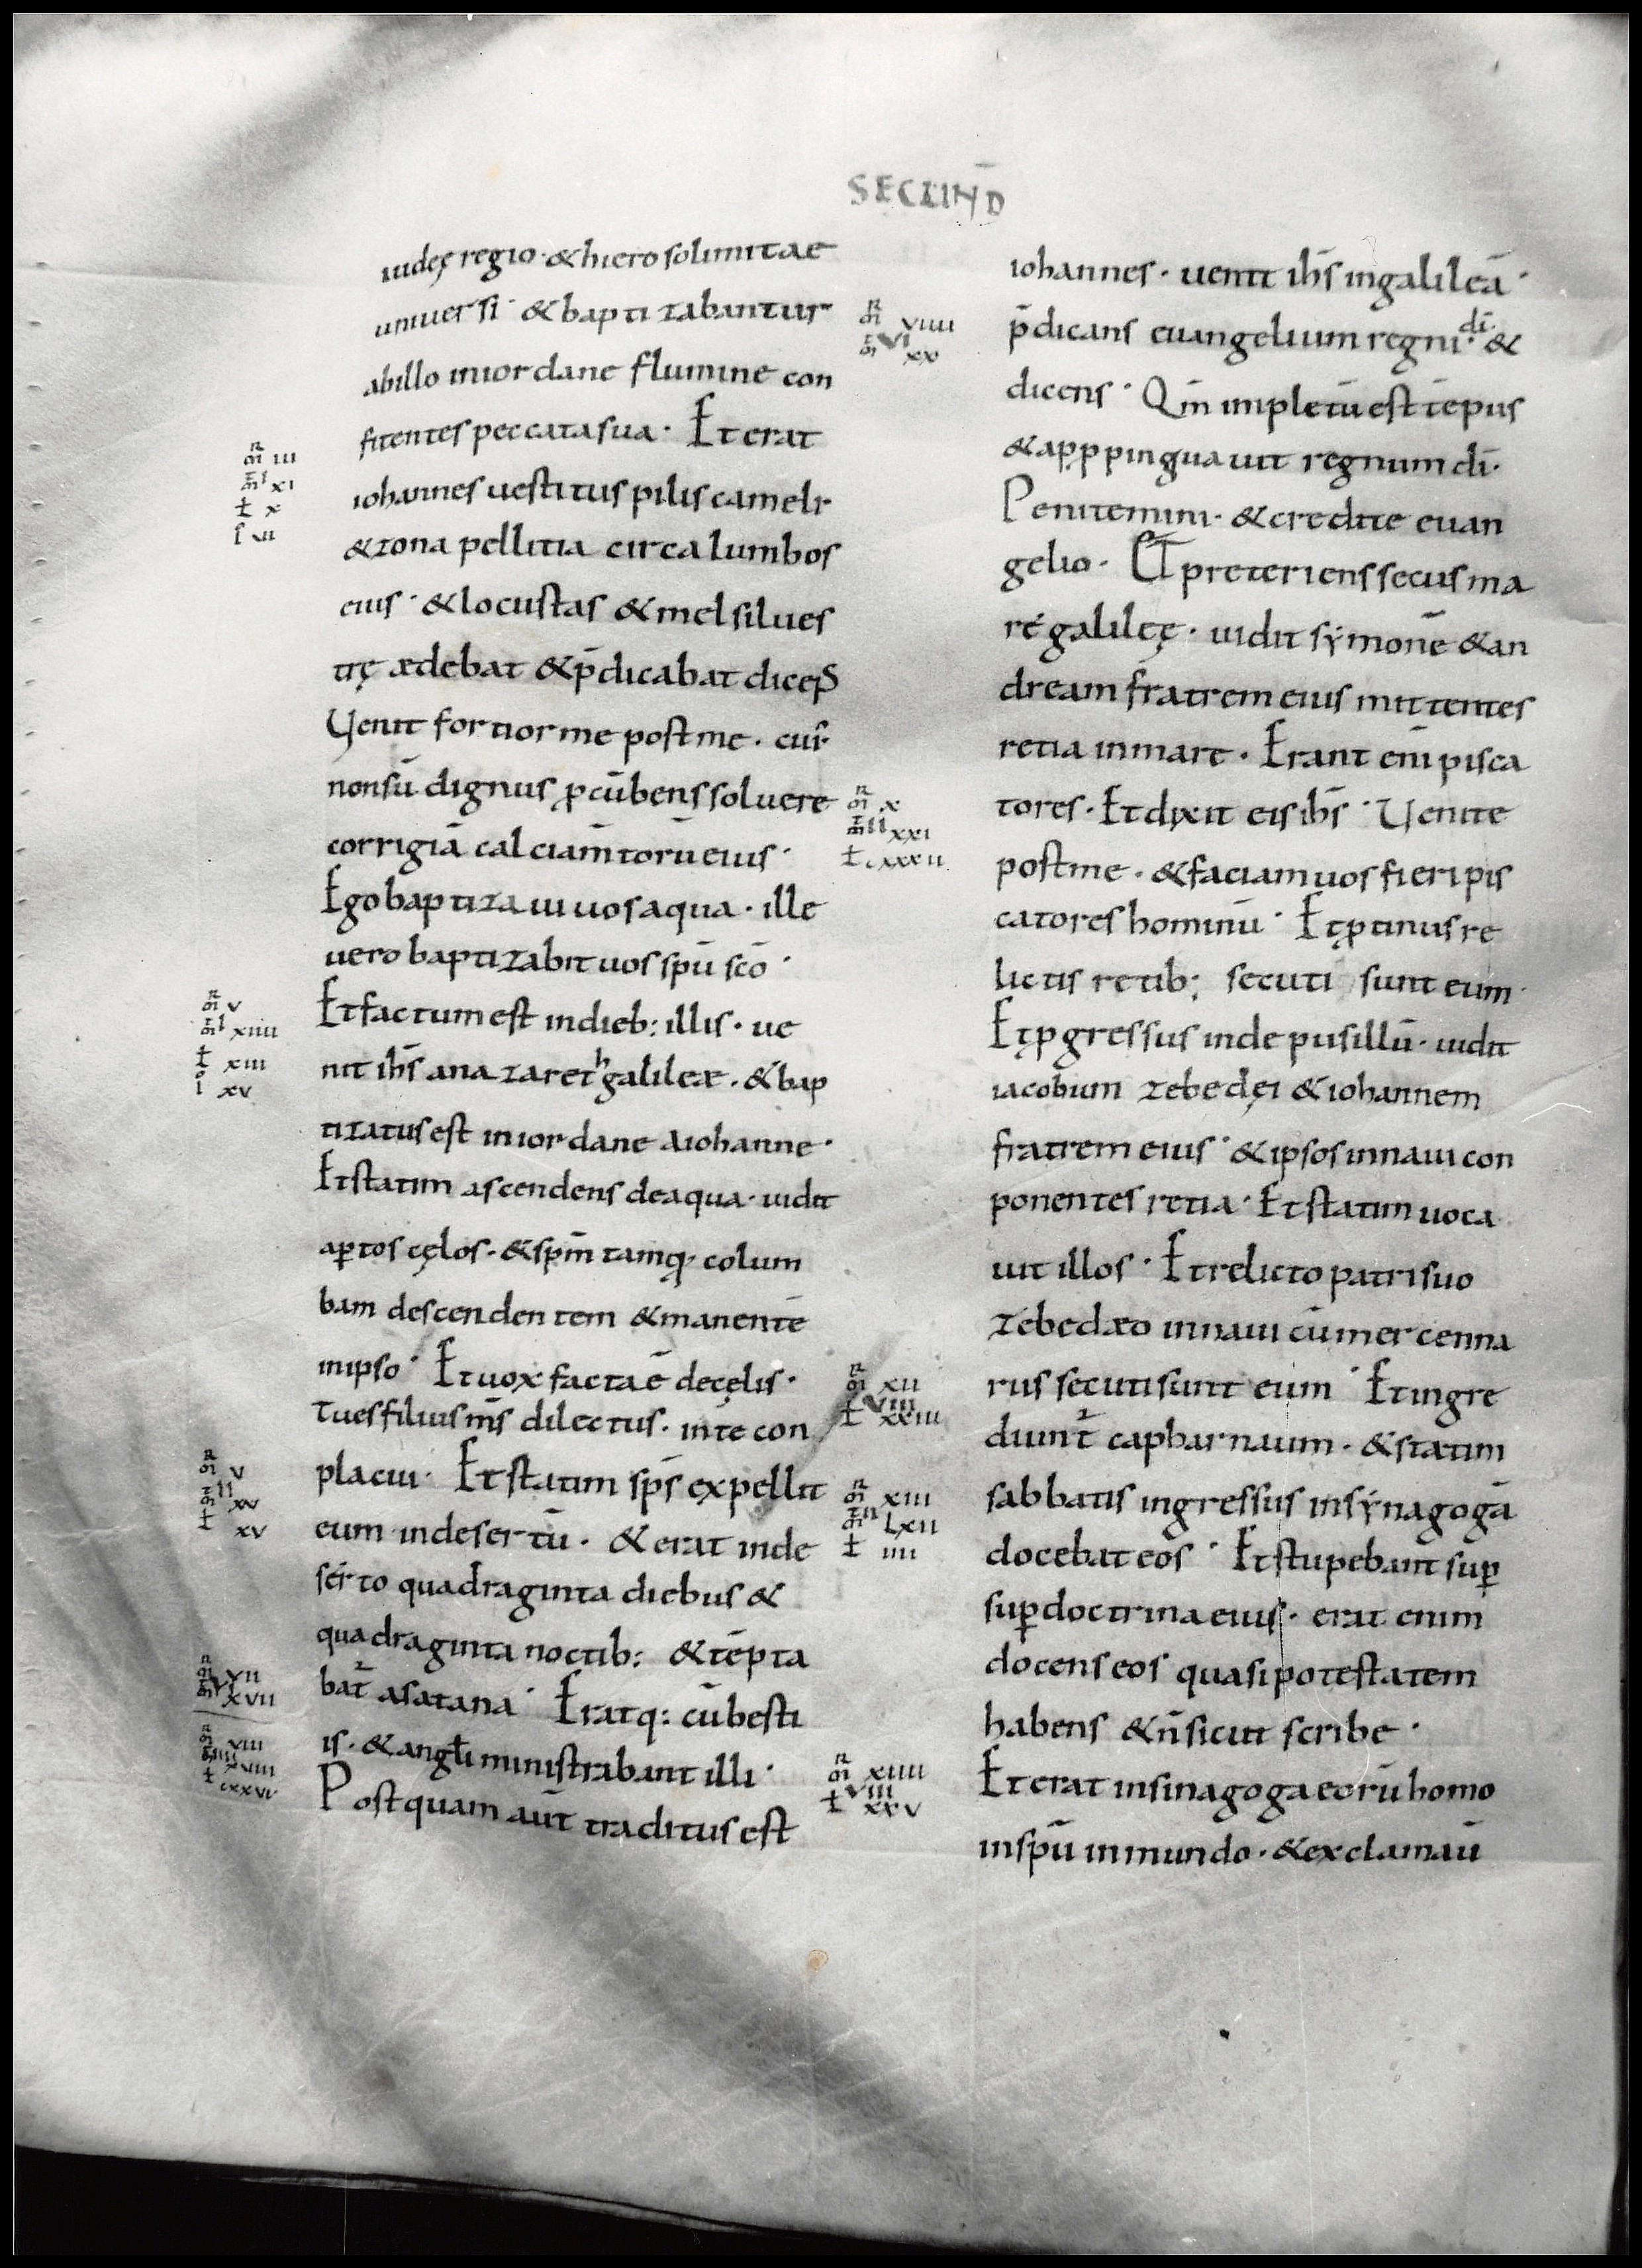 SECUND̄
iudeę regio · & hierosolimitae
uniuersi · & baptizabantur
ab illo in iordane flumine con
fitentes peccata sua · Et erat
m̄r III
m̄t I XI
ł X
iohannes uestitus pilis cameli·
& zona pellitia circa lumbos
eius · & locustas & mel silues
trę ædebat & p̄dicabat dicens
Uenit fortior me post me · cui·
non sū dignus ꝓcūbens soluere
corrigiā calciam̄torū eius ·
Ego baptizaui uos aqua · ille
uero baptizabit uos spū scō ·
m̄r V
m̄t I XIIII
ł XIII
ı XV
Et factum est in dieb; illis · ue
nit ihs̄ a nazareth galileæ · & bap
tizatus est in iordane a iohanne ·
Et statim ascendens de aqua · uidit
aꝑtos cęlos · & spm̄ tamq· colum
bam descendentem & manentē
in ipso · Et uox facta ē de cęlis ·
Tu es filius ms̄ dilectus · in te con
m̄r V
m̄t II XV
ł XV
placui · Et statim sps̄ expellit
eum in desertū · & erat in de
serto quadraginta diebus &
quadraginta noctib; & tēpta
m̄r VII
m̄t VI XVII
bat̄ a satana · Eratq; cū besti
m̄r VIII
m̄t IIII XVIII
ł CXXVI
is · & angłi ministrabant illi ·
Postquam aut̄ traditus est
iohannes · uenit ihs̄ in galileā ·
m̄r VIIII
m̄t VI XX
p̄dicans euangelium regni dī · &
dicens · Qm̄ impletū est tēpus
& apppinquauit regnum dī ·
Penitemini · & credite euan
gelio · Et preteriens secus ma
re galileę · uidit sẏmonē & an
dream fratrem eius mittentes
retia in mare · Erant enī pisca
m̄r X
m̄t II XXI
ł XXXII
tores · Et dixit eis ihs̄ · Uenite
post me · & faciam uos fieri pis
catores hominū · Et ꝓtinus re
lictis retib; secuti sunt eum ·
Et ꝓgressus inde pusillū · uidit
iacobum zebedęi & iohannem
fratrem eius · & ipsos in naui con
ponentes retia · Et statim uoca
uit illos · Et relicto patri suo
zebedæo in naui cū mercenna
m̄r XII
VIII
ł XXIII
rus secuti sunt eum · Et ingre
diunt̄ capharnaum · & statim
m̄r XIII
m̄t II LXII
ł IIII
sabbatis ingressus in sẏnagogā
docebat eos · Et stupebant suꝑ
suꝑ doctrina eius · erat enim
docens eos quasi potestatem
habens & n̄ sicut scribe ·
m̄r XIIII
VIII
ł XXV
Et erat in sinagoga eorū homo
in spū inmundo · & exclamauī